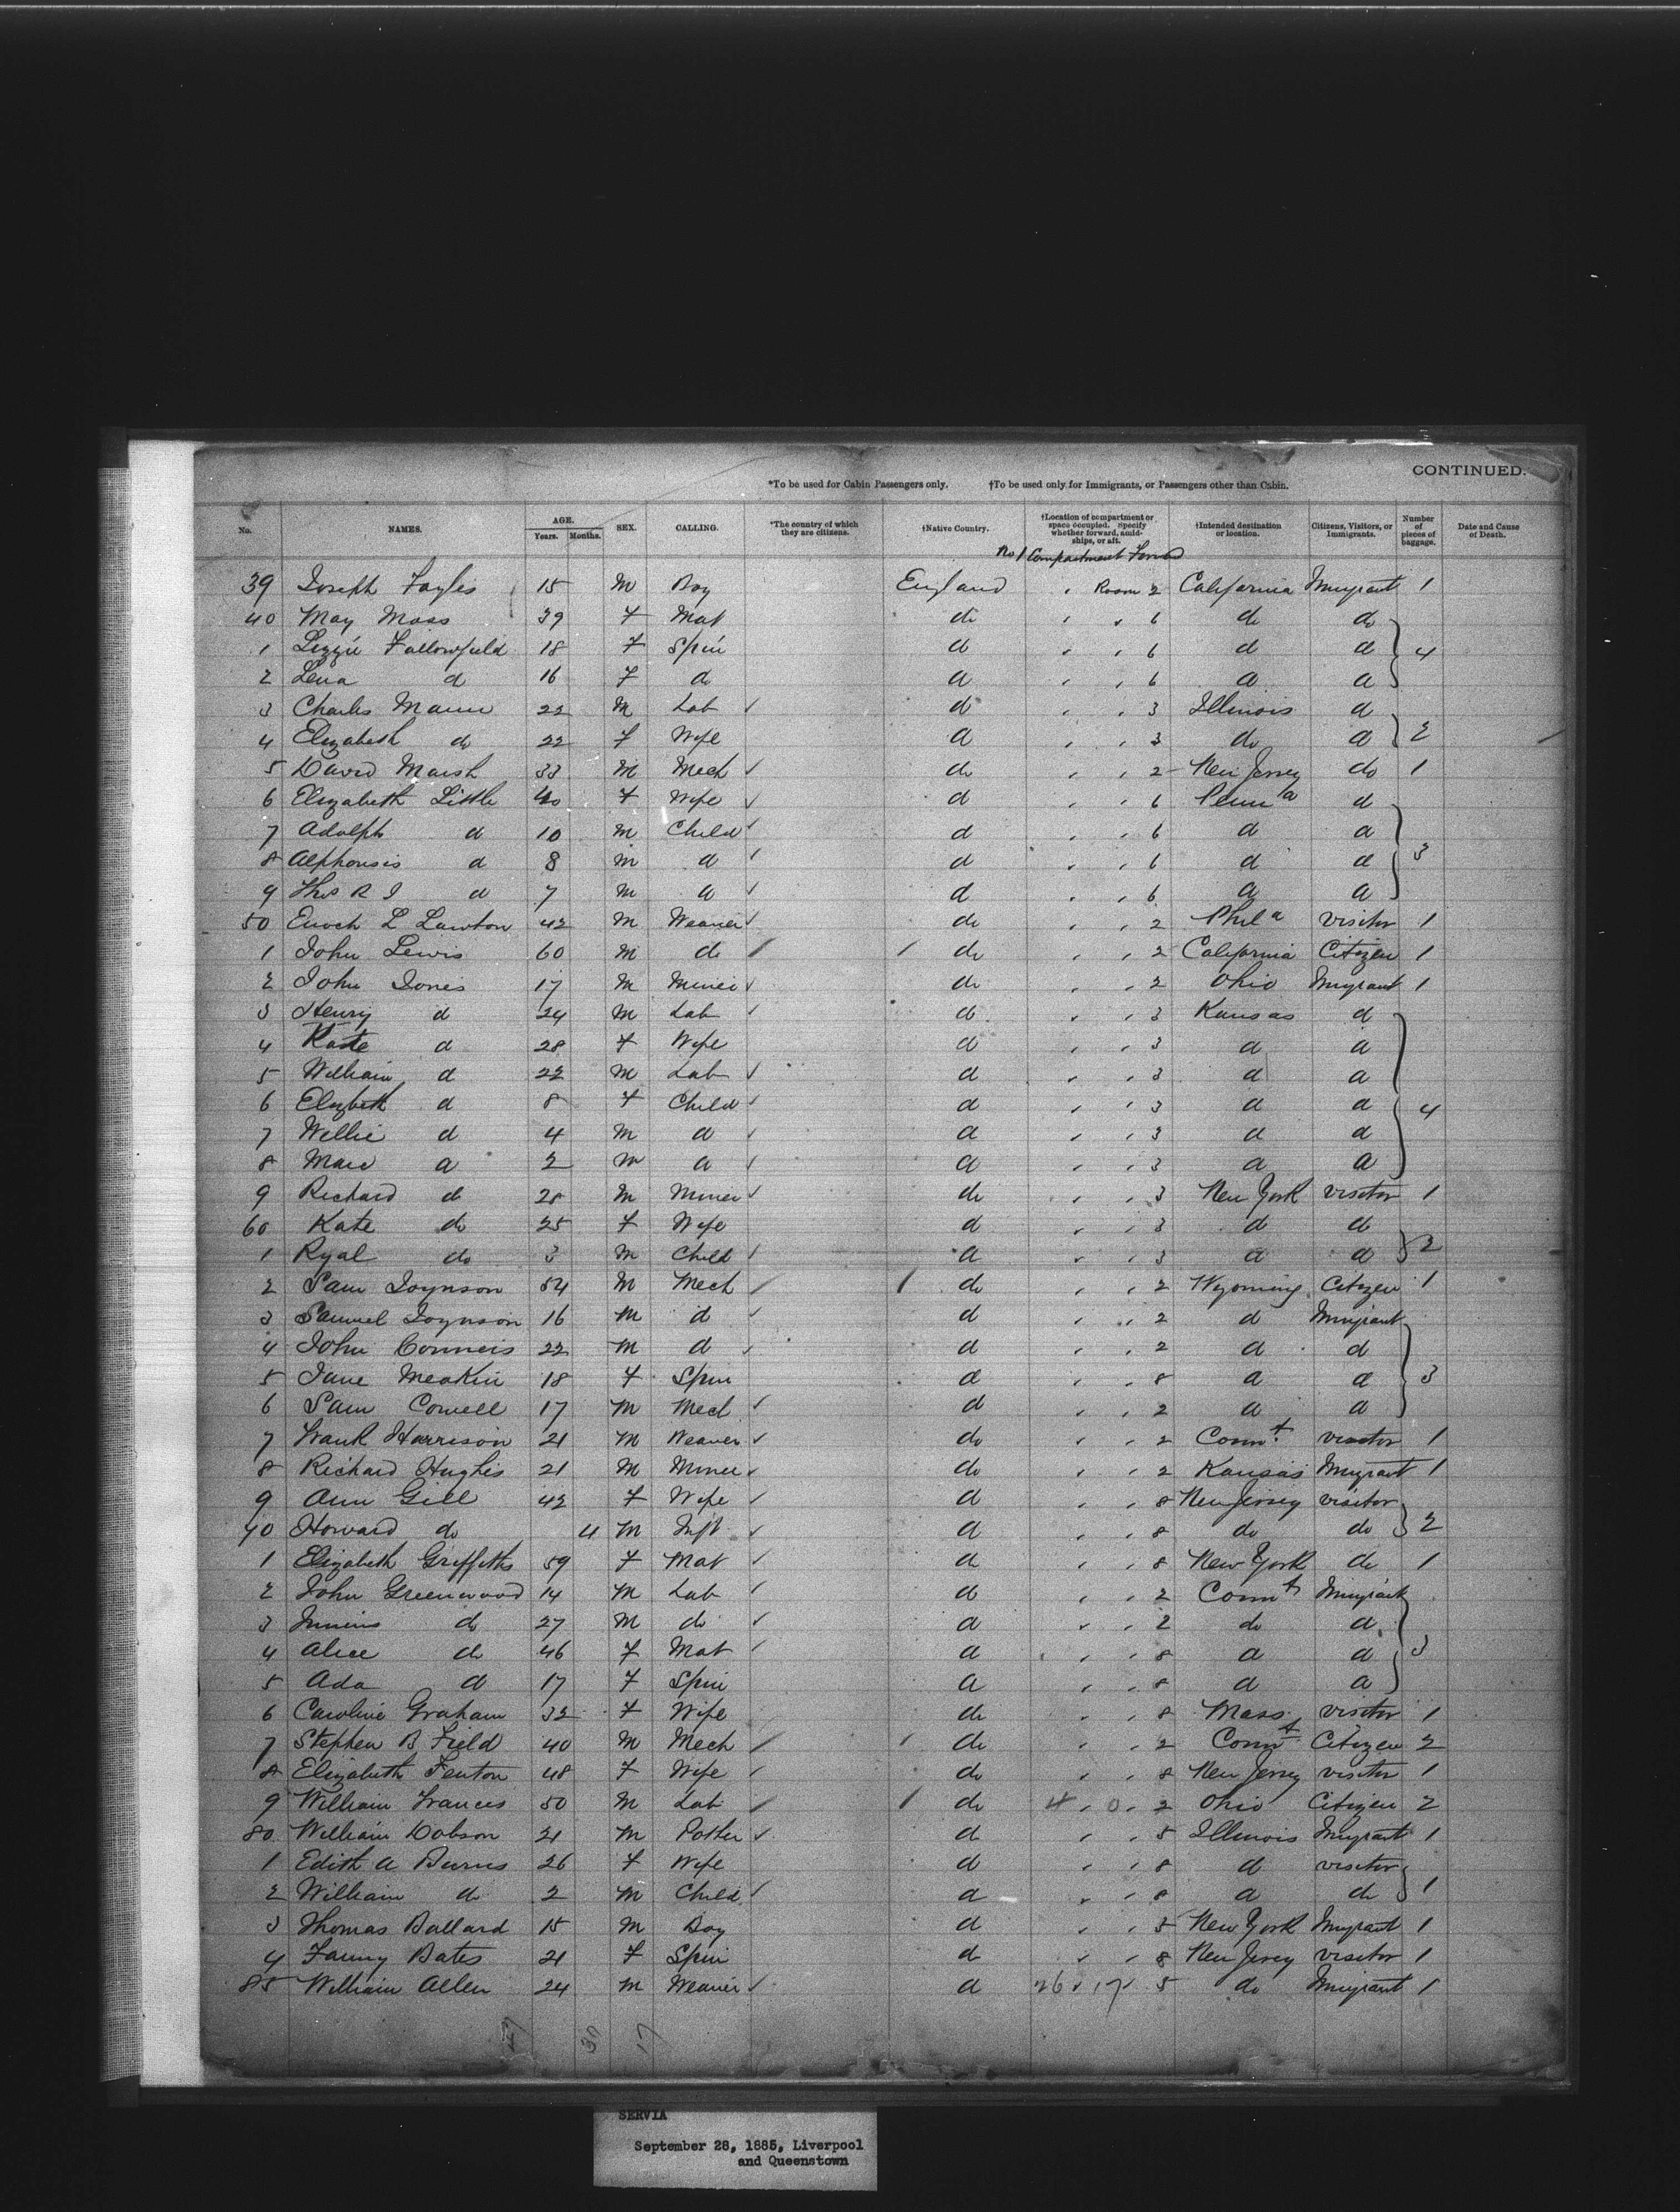 CONTINUED.
*To be used for Cabin Passengers only. †To be used only for Immigrants, or Passengers other than Cabin.
No. NAMES. AGE. Years. Months. SEX. CALLING. *The country of which they are citizens. †Native Country. †Location of compartment or space occupied. Specify whether forward, amidships, or aft. †Intended destination or location. Citizens, Visitors, or Immigrants. Number of pieces of baggage. Date and Cause of Death.
No 1 Compartment Forwd
39 Joseph Fayles 15 M Boy England " Room 2 California Imigrant 1
40 May Moss 39 F Mat do " " 6 do do
1 Lizzie Fallowfield 18 F Spin d " " 6 d d 4
2 Lena d 16 F d d " " 6 d d
3 Charles Mann 22 M Lab d " " 3 Illinois d
4 Elizabeth do 22 F Wife d " " 3 do d 2
5 David Marsh 33 M Mech do " " 2 New Jersey do 1
6 Elizabeth Little 40 F Wife d " " 6 Penna d
7 Adolph d 10 M Child d " " 6 d d
8 Alphonsis d 8 M d d " " 6 d d 3
9 Thos R J d 7 M d d " " 6 d d
50 Enoch L Lawton 42 M Weaver do " " 2 Phila visitor 1
1 John Lewis 60 M do do " " 2 California Citizen 1
2 John Jones 17 M Miner do " " 2 Ohio Imigrant 1
3 Henry d 24 M Lab d " " 3 Kansas d
4 Kate d 28 F Wife d " " 3 d d
5 William d 22 M Lab d " " 3 d d
6 Elizbeth d 8 F Child d " " 3 d d 4
7 Willie d 4 M d d " " 3 d d
8 d 2 M d d " " 3 d d
9 Richard do 28 M Miner do " " 3 New York visitor 1
60 Kate do 25 F Wife d " " 3 d do
1 Ryal do 3 M Child d " " 3 d d 2
2 Sam Joynson 54 M Mech do " " 2 Wyoming Citizen 1
3 Samuel Joynson 16 M d d " " 2 d Imigrant
4 John Conneis 22 M d d " " 2 d d
5 Jane Meakin 18 F Spin d " " 8 d d 3
6 Sam Cornell 17 M Mech d " " 2 d d
7 Frank Harrison 21 M Weaver do " " 2 Connt visitor 1
8 Richard Hughes 21 M Miner do " " 2 Kansas Imigrant 1
9 Ann Gill 42 F Wife d " " 8 New Jersey visitor
70 Howard do 4 M Inft d " " 8 do do 2
1 Elizabeth Griffiths 59 F Mat d " " 8 New York do 1
2 John Greenwood 14 M Lab d " " 2 Connt Imigrant
3 do 27 M do d " " 2 do d
4 Alice do 46 F Mat d " " 8 d d 3
5 Ada d 17 F Spin d " " 8 d d
6 Caroline Graham 32 F Wife do " " 8 Mass visitor 1
7 Stephen B Field 40 M Mech do " " 2 Connt Citizen 2
8 Elizabeth Fenton 48 F Wife do " " 8 New Jersey visitor 1
9 William Frances 50 M Lab do 4 " 0 " 2 Ohio Citizen 2
80 William Dobson 21 M Potter d " " 5 Illinois Imigrant 1
1 Edith A Burns 26 F Wife d " " 8 d visitor
2 William do 2 M Child d " " 8 d do 1
3 Thomas Ballard 15 M Boy d " " 5 New York Imigrant 1
4 Fanny Bates 21 F Spin d " " 8 New Jersey visitor 1
85 William Allen 24 M Weaver d 26 " 17 " 5 do Imigrant 1
30 17
SERVIA
September 28, 1885, Liverpool
and Queenstown